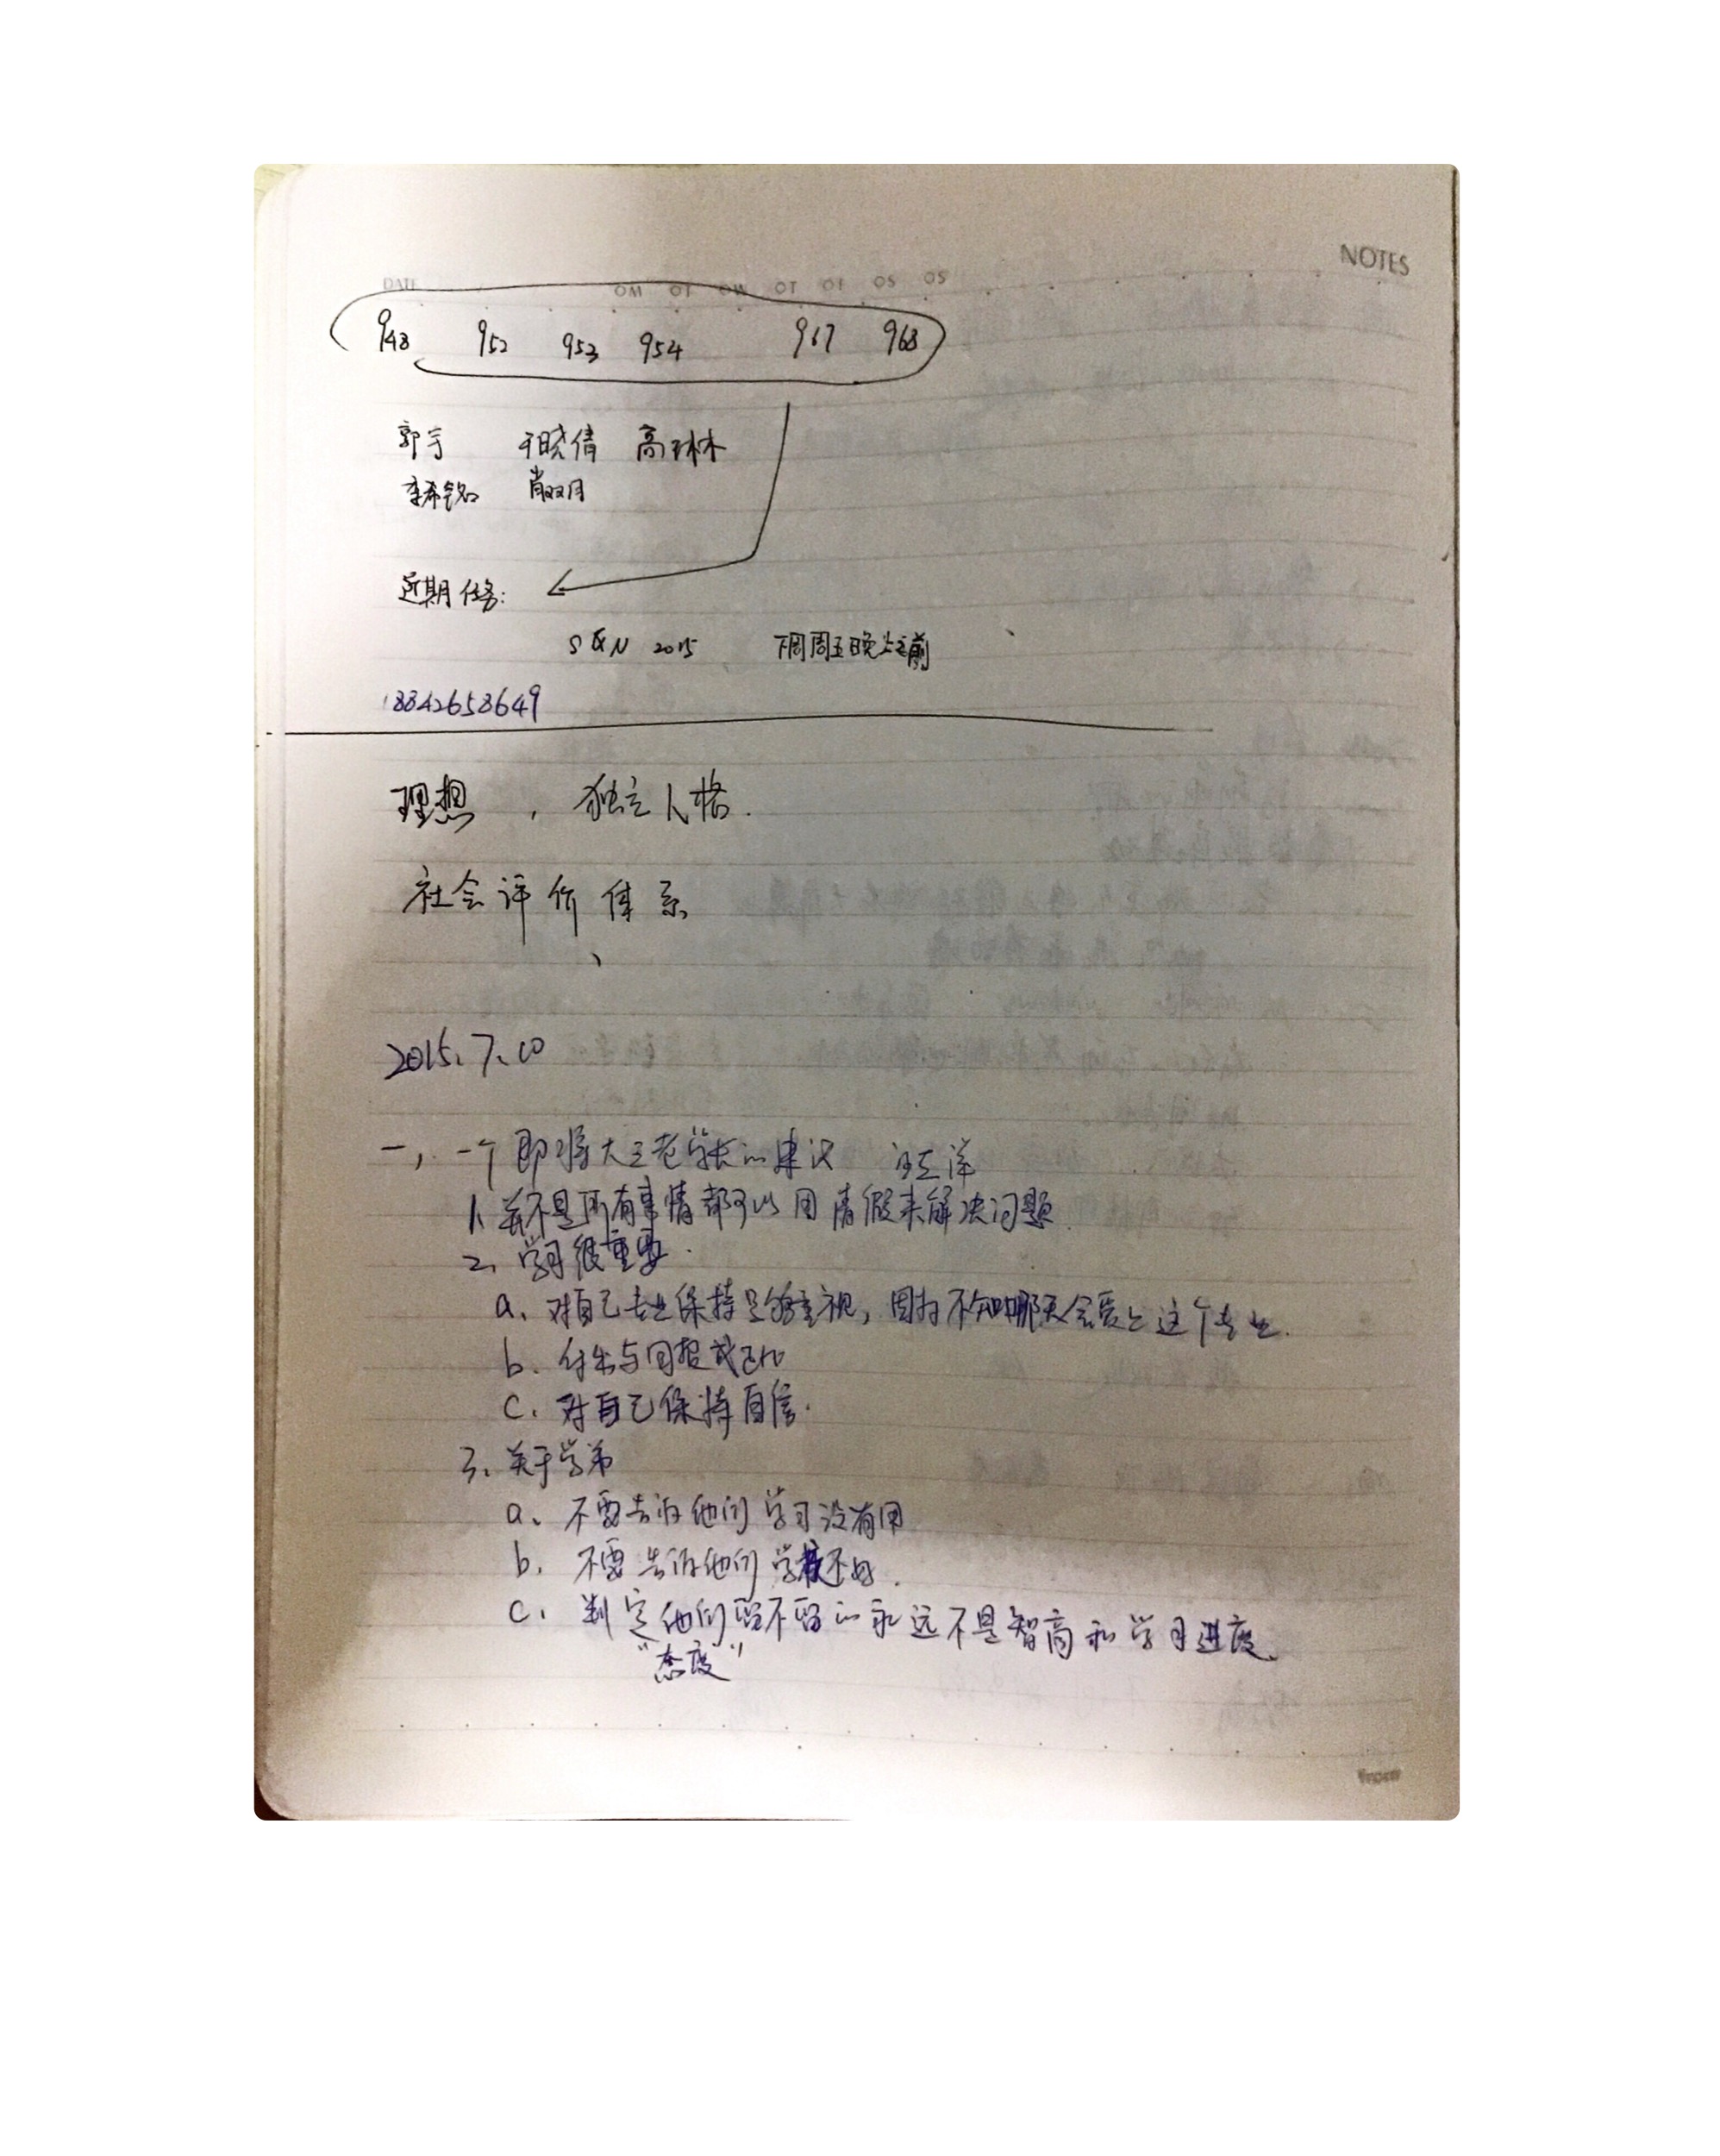 NOTES
DATE MO TO WO TO TO SO SO
948 952 953 954 967 968
郭宇 于晓倩 高琳
李希铭 肖双月
近期任务:
S&N 2015 下周周五晚上之前
18842658649
理想 , 独立人格.
社会评价体系
2015.7.10
一, 一个即将大三老学长的建议 汪洋
1. 并不是所有事情都可以用请假来解决问题
2. 学习很重要.
a. 对自己专业保持足够重视, 因为不知哪天会爱上这个专业.
b. 付出与回报成正比
c. 对自己保持自信.
3. 关于学弟
a. 不要告诉他们学习没有用
b. 不要告诉他们学校不好.
c. 判定他们留不留的永远不是智高和学习进度.
"态度"
from